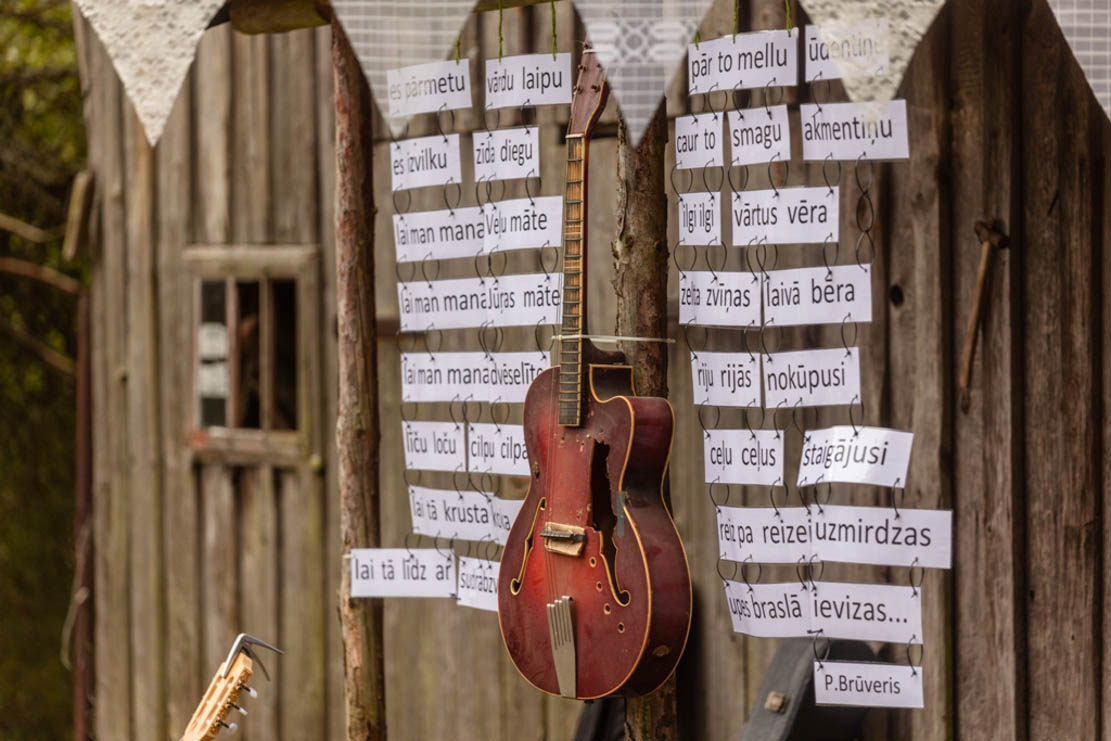 es pārmetu vārdu laipu
es izvilku zīda diegu
lai man mana Veļu māte
lai man mana Jūras māte
lai man mana dvēselīte
līču loču cilpu cilpa
lai tā krusta
lai tā līdz ar sudrabzv
pār to mellu ūdentiņu
caur to smagu akmentiņu
ilgi ilgi vārtus vēra
zelta zvīņas laivā bēra
riju rijās nokūpusi
ceļu ceļus staigājusi
reizi pa reizei uzmirdzas
upes braslā ievizas...
P.Brūveris